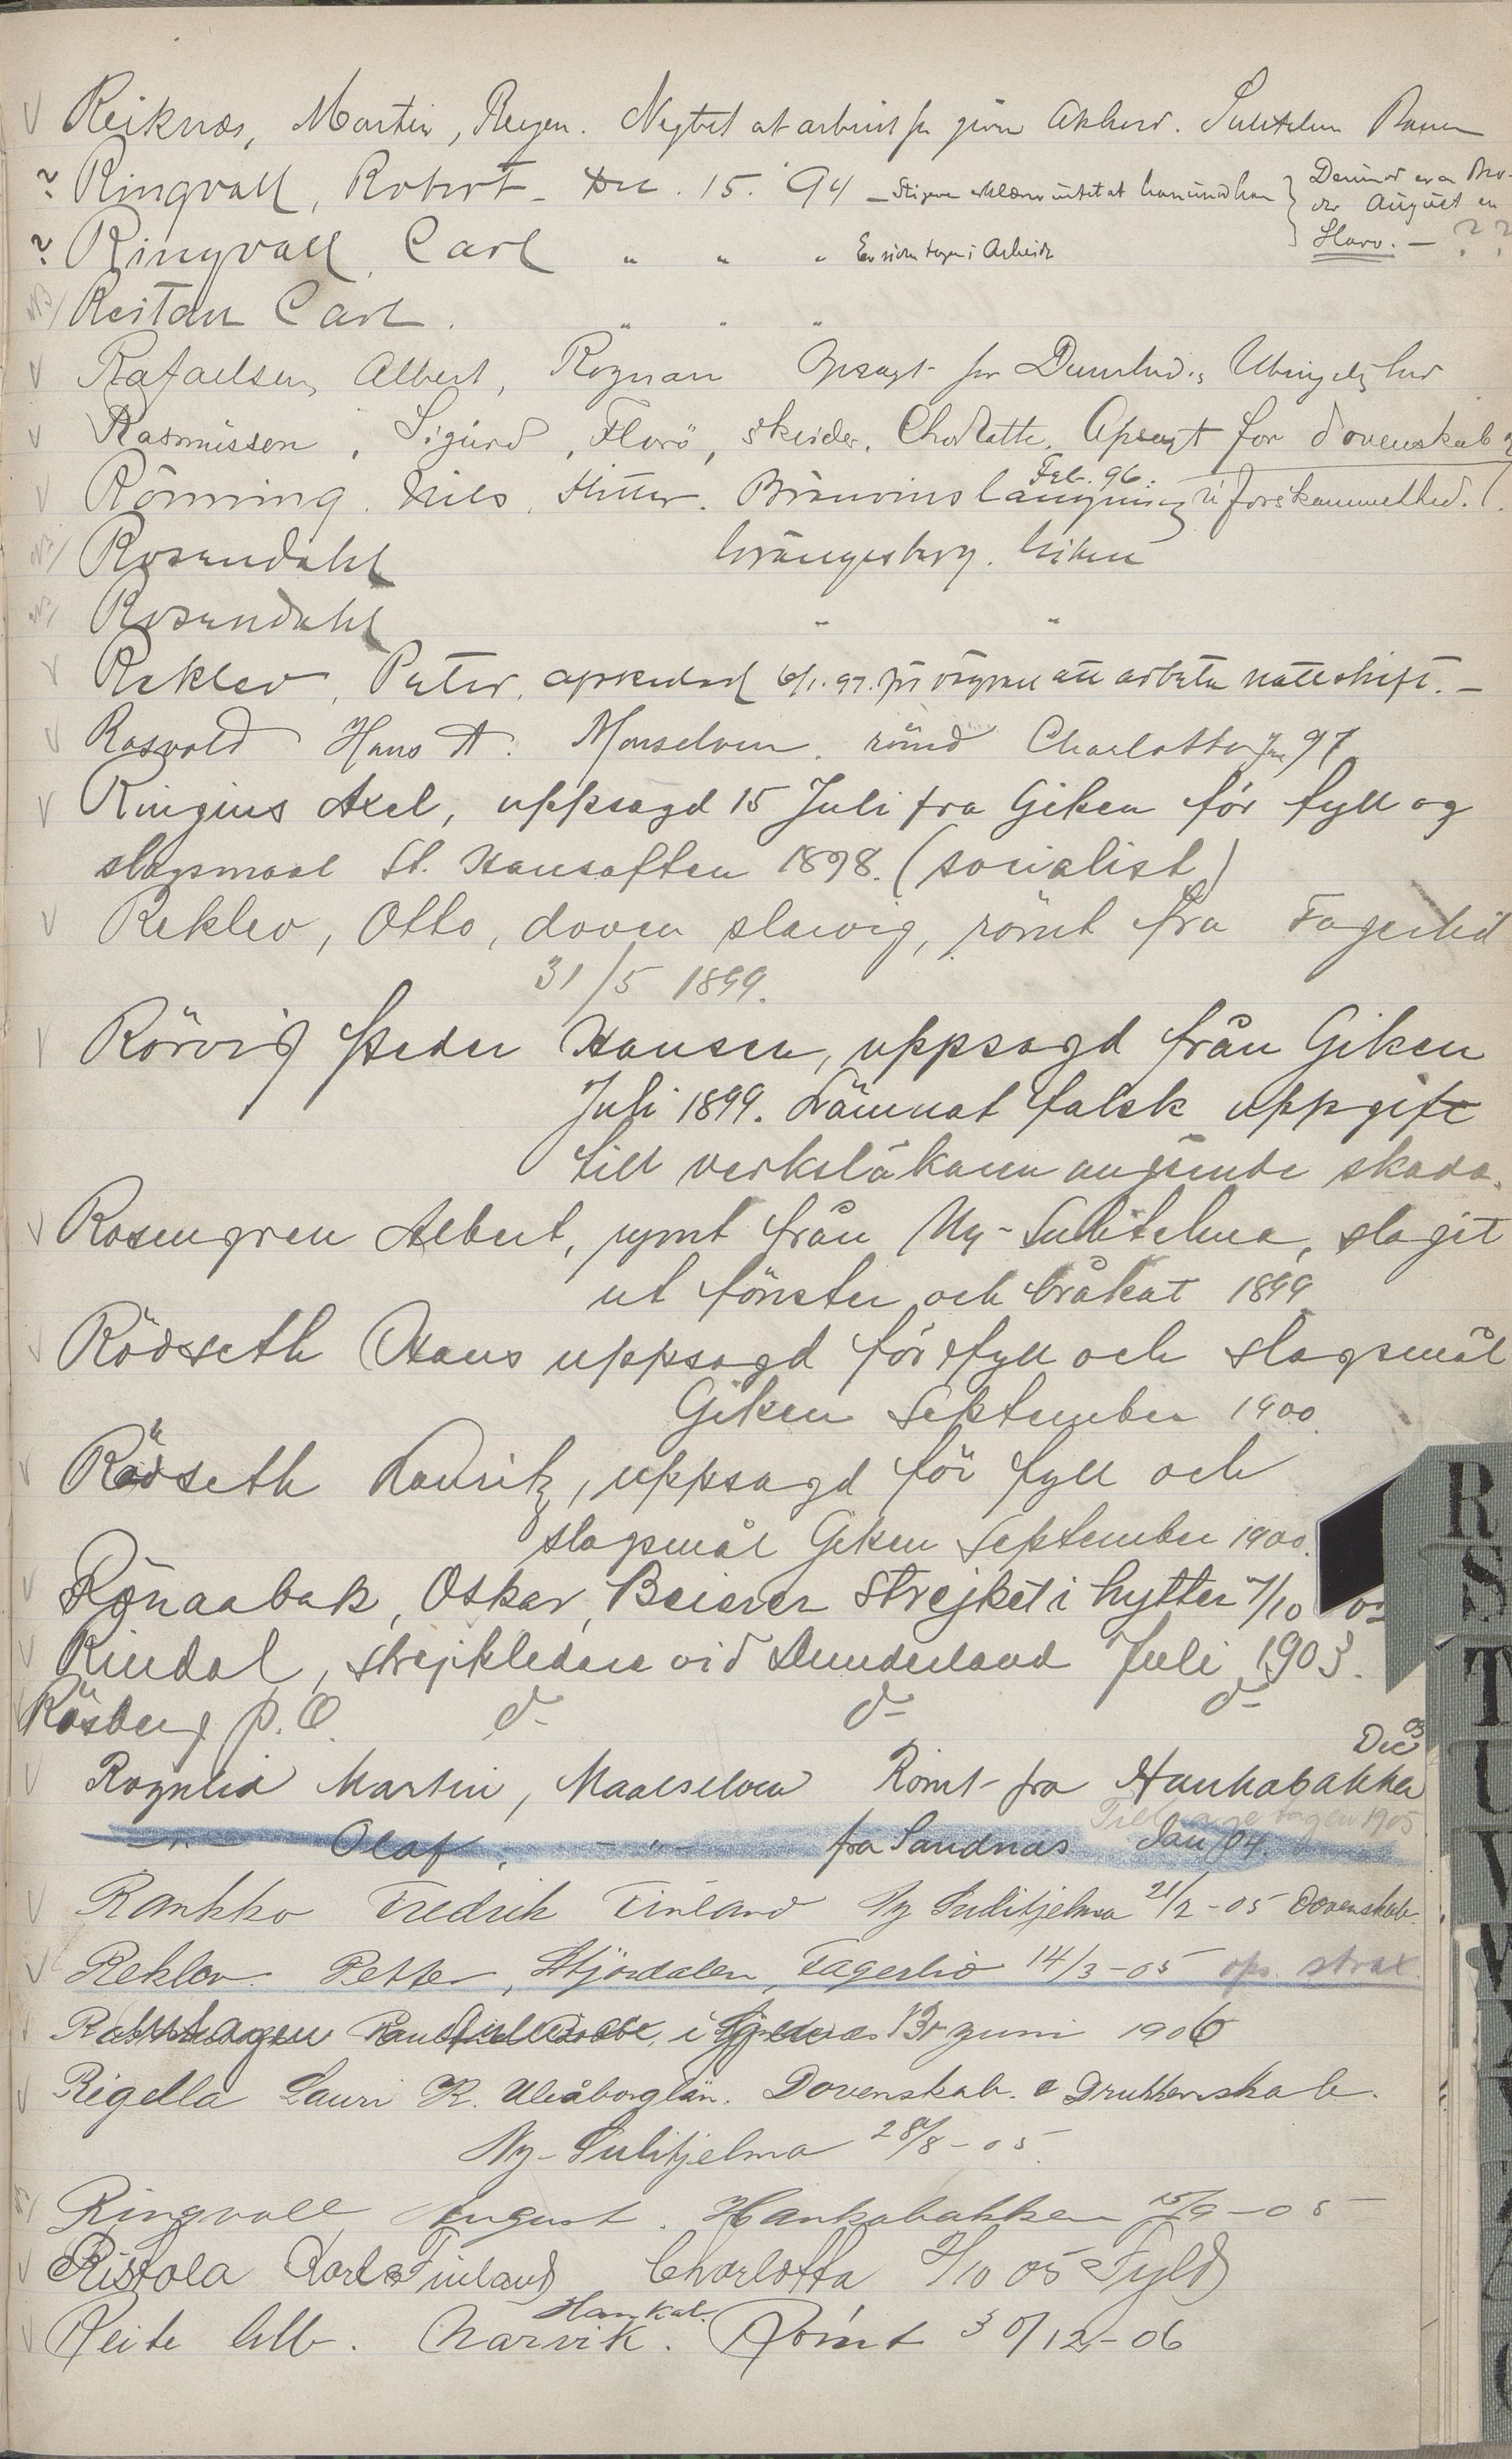 Reiknæs, Martin, Negtet at arbeide for given Akkord. Sulitelma
? Ringvall, Robert – Dec. 15. 94 – Denne er en Bro-
der August en
Slarv. – ??
? Ringvall, Carl " " " Er siden tagen i Arbeide
Restan Carl. " " "
Rafaelsen, Albert, Rognan Opsagt for
Rasmussen, Sigurd, Florö, skeider, Charlotta. Opsagt for dovenskab
Rönning, Nils, Hitter. Brænvinslangning Feb. 96. forskammethed.
Rosendahl Grängesberg. Giken
Rosendahl " "
Reklev, Peter, afskedad 6/1.97. för vägran att arbeta natteskift. –
Rosvold Hans A. Maaselven. römd Charlotta Jan 97
Ringius Axel, uppsagd 15 Juli fra Giken för fyll og
slagsmaal St. Hansaften 1898. (socialist)
Reklev, Otto, doven slarvig, römt fra Fagerlid
31/5 1899.
Rörvig Peder Hansen, uppsagd från Giken
Juli 1899. Lämnat falsk uppgift
till verksläkaren angående skada.
Rosengren Albert, rymt från Ny-Sulitelma, slagit
ut fönster och bråkat 1899
Rödseth Hans uppsagd för fyll och slagsmål
Giken September 1900.
Rödseth Lauritz, uppsagd för fyll och
slagsmål Giken September 1900.
Rönaabak, Oskar, Beieren strejket i hytten 7/10 02
Rindal, strejkledare vid Dunderland Juli 1903.
Rösberg P. O. do do do
Rognlid Martin, Maalselven Römt fra Hankabakken Dec 03
– " – Olaf, – " – fra Sandnæs Jan 04. Tillbage tagen 1905
Rankko Fredrik Finland Ny Sulitjelma 21/2 – 05 Dovenskab.
Reklev. Petter, Stjördalen, Fagerlid 14/3 – 05 ops. strax
i juni 1906
Rigella Lauri R. Uleåborglän. Dovenskab. o Drukkenskab.
Ny-Sulitjelma 28/8 – 05.
Ringvall August. Hankabakken 15/9 – 05
Ristola Karl Finland Charlotta 2/10 05 Fyld
Reite Alb. Narvik. Hankab. Römt 30/12 – 06
R
S
T
U
V
W